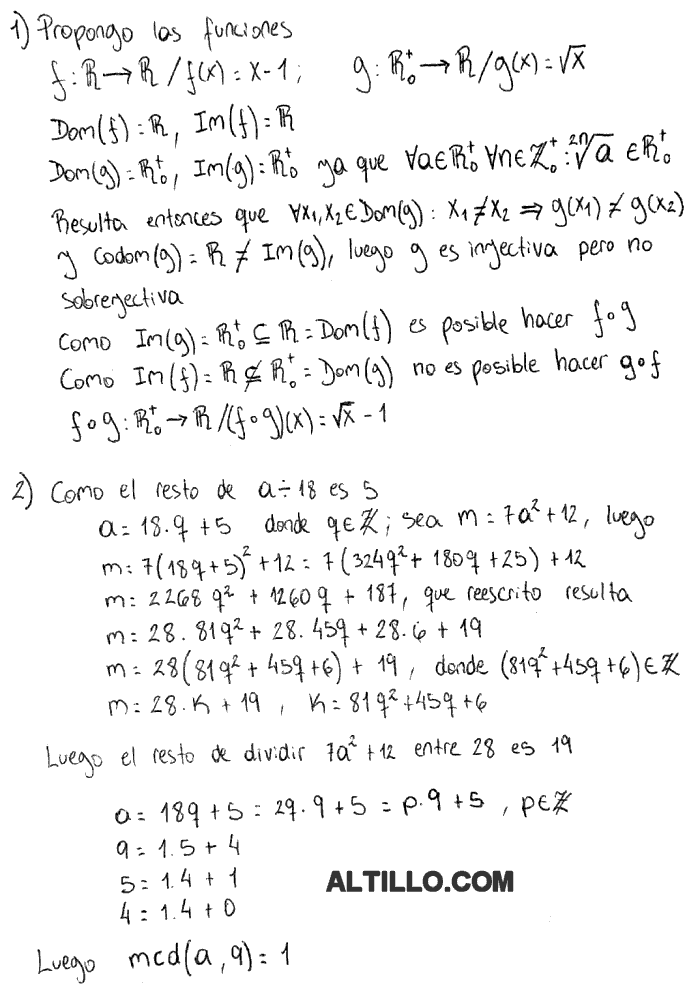 1) Propongo las funciones
f: ℝ → ℝ / f(x) = x - 1 ; g: ℝ₀⁺ → ℝ / g(x) = √x
Dom(f) = ℝ, Im(f) = ℝ
Dom(g) = ℝ₀⁺, Im(g) = ℝ₀⁺ ya que ∀a∈ℝ₀⁺ ∀n∈ℤ₀⁺ : ²ⁿ√a ∈ ℝ₀⁺
Resulta entonces que ∀x₁,x₂∈Dom(g) : x₁ ≠ x₂ ⇒ g(x₁) ≠ g(x₂)
y Codom(g) = ℝ ≠ Im(g), luego g es inyectiva pero no
sobreyectiva
Como Im(g) = ℝ₀⁺ ⊆ ℝ = Dom(f) es posible hacer f∘g
Como Im(f) = ℝ ⊈ ℝ₀⁺ = Dom(g) no es posible hacer g∘f
f∘g : ℝ₀⁺ → ℝ / (f∘g)(x) = √x - 1
2) Como el resto de a ÷ 18 es 5
a = 18.q + 5 donde q∈ℤ ; sea m = 7a² + 12, luego
m = 7(18q + 5)² + 12 = 7(324q² + 180q + 25) + 12
m = 2268 q² + 1260 q + 187, que reescrito resulta
m = 28 . 81q² + 28 . 45q + 28 . 6 + 19
m = 28(81q² + 45q + 6) + 19, donde (81q² + 45q + 6) ∈ ℤ
m = 28 . K + 19 , K = 81q² + 45q + 6
Luego el resto de dividir 7a² + 12 entre 28 es 19
a = 18q + 5 = 2q . 9 + 5 = p . 9 + 5 , p∈ℤ
9 = 1.5 + 4
5 = 1.4 + 1
4 = 1.4 + 0
ALTILLO.COM
Luego mcd(a, 9) = 1